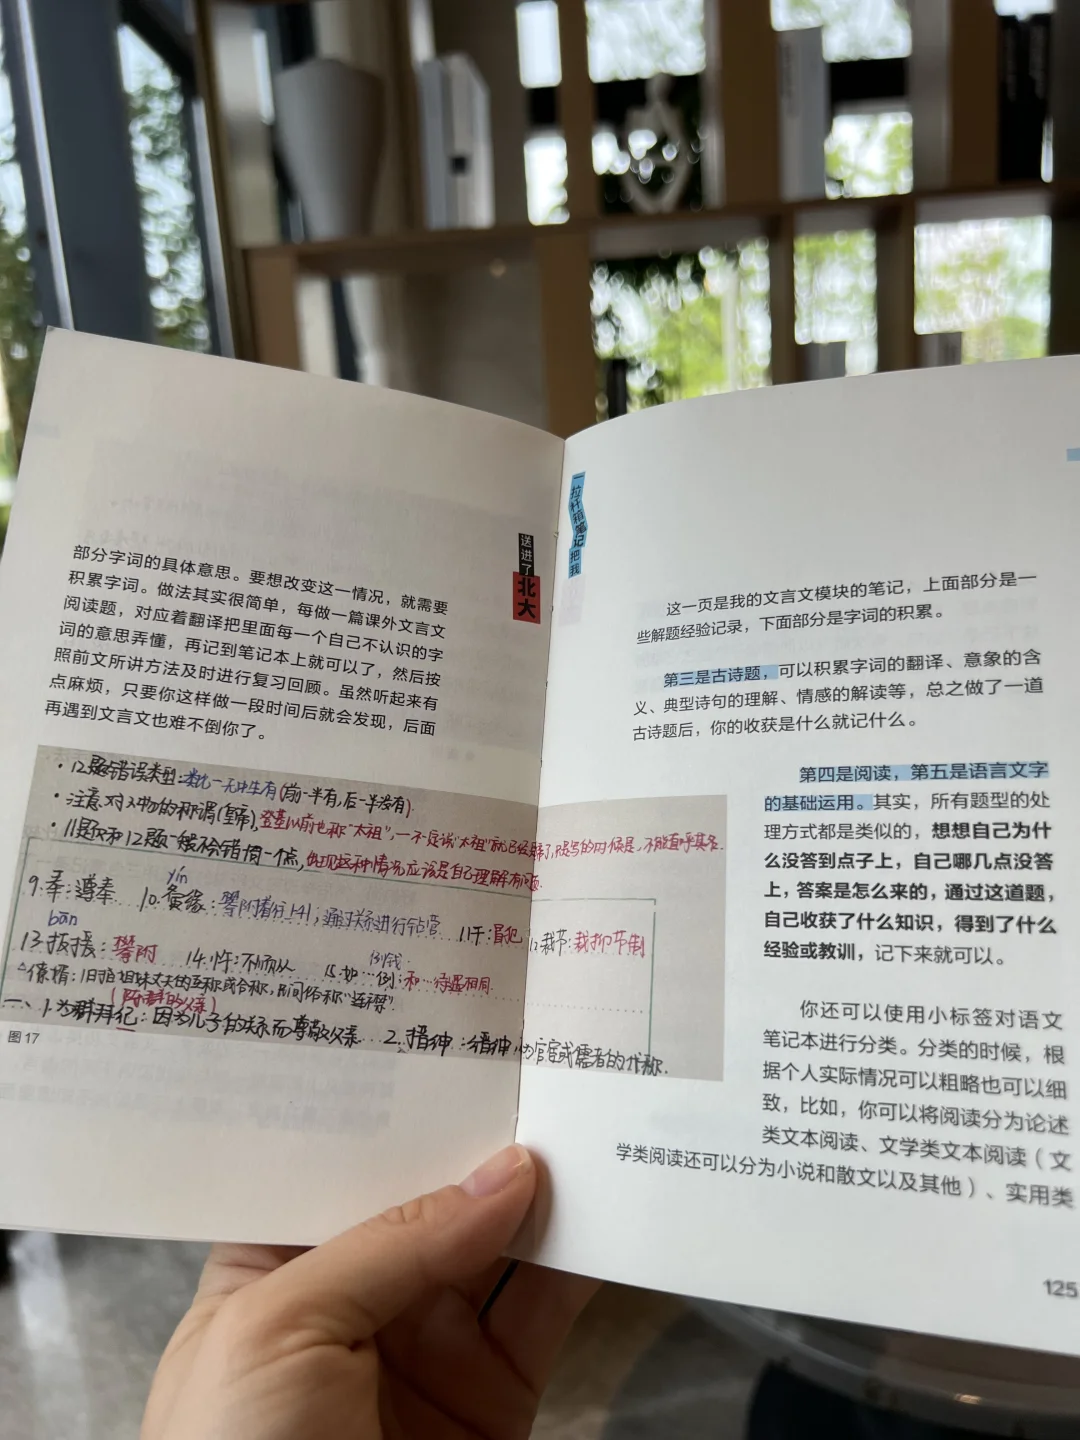 部分字词的具体意思。要想改变这一情况，就需要
积累字词。做法其实很简单，每做一篇课外文言文
阅读题，对应着翻译把里面每一个自己不认识的字
词的意思弄懂，再记到笔记本上就可以了，然后按
照前文所讲方法及时进行复习回顾。虽然听起来有
点麻烦，只要你这样做一段时间后就会发现，后面
再遇到文言文也难不倒你了。
送进了
北大
·12题错误类型：无中生有(前一半有,后一半没有)
·注意对人物的称谓(皇帝),登基以前也称"太祖",一不定说"太祖"就已经 不能直呼其名.
·11题和12题一般不会错同一个点,出现这种情况应该是自己理解有问题.
yín
9.奉:遵奉 10.夤缘:攀附 通过关系进行钻营 11.干:冒犯 12.裁节:裁抑节制
bān
例钱.
13.扳援:攀附 14.忤:不顺从 15.如…例:和…待遇相同.
△僚婿:旧指姐妹丈夫的互称或合称,民间俗称"连襟".
(陈群的父亲)
一、1.为群拜纪:因为儿子的关系而尊敬父亲 2.搢绅:缙绅,为官宦或儒者的代称.
图17
一拉杆箱笔记把我
这一页是我的文言文模块的笔记，上面部分是一
些解题经验记录，下面部分是字词的积累。
第三是古诗题，可以积累字词的翻译、意象的含
义、典型诗句的理解、情感的解读等，总之做了一道
古诗题后，你的收获是什么就记什么。
第四是阅读，第五是语言文字
的基础运用。其实，所有题型的处
理方式都是类似的，想想自己为什
么没答到点子上，自己哪几点没答
上，答案是怎么来的，通过这道题，
自己收获了什么知识，得到了什么
经验或教训，记下来就可以。
你还可以使用小标签对语文
笔记本进行分类。分类的时候，根
据个人实际情况可以粗略也可以细
致，比如，你可以将阅读分为论述
类文本阅读、文学类文本阅读（文
学类阅读还可以分为小说和散文以及其他）、实用类
125